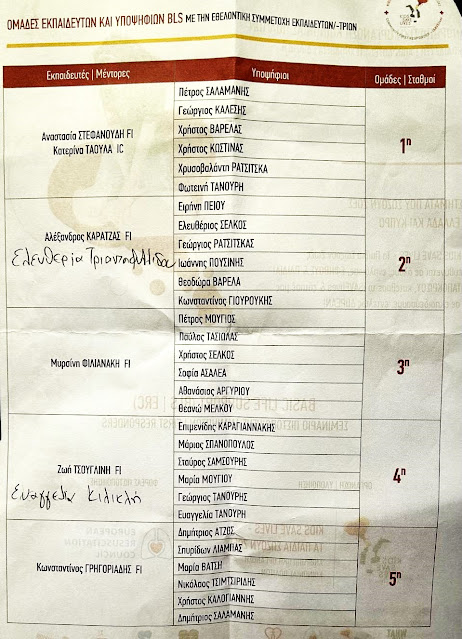 ΟΜΑΔΕΣ ΕΚΠΑΙΔΕΥΤΩΝ ΚΑΙ ΥΠΟΨΗΦΙΩΝ BLS ΜΕ ΤΗΝ ΕΘΕΛΟΝΤΙΚΗ ΣΥΜΜΕΤΟΧΗ ΕΚΠΑΙΔΕΥΤΩΝ/-ΤΡΙΩΝ
Εκπαιδευτές | Μέντορες Υποψήφιοι Ομάδες | Σταθμοί
Αναστασία ΣΤΕΦΑΝΟΥΔΗ FI
Κατερίνα ΤΑΟΥΛΑ IC
Πέτρος ΣΑΛΑΜΑΝΗΣ
Γεώργιος ΚΑΛΕΣΗΣ
Χρήστος ΒΑΡΕΛΑΣ
Χρήστος ΚΩΣΤΙΝΑΣ
Χρυσοβαλάντη ΡΑΤΣΙΤΣΚΑ
Φωτεινή ΤΑΝΟΥΡΗ
1η
Αλέξανδρος ΚΑΡΑΤΖΑΣ FI
Ελευθερία Τριανταφυλλίδου
Ειρήνη ΠΕΙΟΥ
Ελευθέριος ΣΕΛΚΟΣ
Γεώργιος ΡΑΤΣΙΤΣΚΑΣ
Ιωάννης ΠΟΥΣΙΝΗΣ
Θεοδώρα ΒΑΡΕΛΑ
Κωνσταντίνος ΓΙΟΥΡΟΥΚΗΣ
2η
Μυρσίνη ΦΙΛΙΑΝΑΚΗ FI
Πέτρος ΜΟΥΓΙΟΣ
Παύλος ΤΑΣΙΩΛΑΣ
Χρήστος ΣΕΛΚΟΣ
Σοφία ΑΣΑΛΕΑ
Αθανάσιος ΑΡΓΥΡΙΟΥ
Θεανώ ΜΕΛΚΟΥ
3η
Ζωή ΤΣΟΥΓΛΙΝΗ FI
Ευαγγελία Κιλικλή
Επιμενίδης ΚΑΡΑΓΙΑΝΝΑΚΗΣ
Μάριος ΣΠΑΝΟΠΟΥΛΟΣ
Σταύρος ΣΑΜΣΟΥΡΗΣ
Μαρία ΜΟΥΓΙΟΥ
Γεώργιος ΤΑΝΟΥΡΗΣ
Ευαγγελία ΤΑΝΟΥΡΗ
4η
Κωνσταντίνος ΓΡΗΓΟΡΙΑΔΗΣ FI
Δημήτριος ΑΤΖΟΣ
Σπυρίδων ΛΙΑΜΠΑΣ
Μαρία ΒΑΤΣΗ
Νικόλαος ΤΣΙΜΤΣΙΡΙΔΗΣ
Χρήστος ΚΑΛΟΓΙΑΝΝΗΣ
Δημήτριος ΣΑΛΑΜΑΝΗΣ
5η